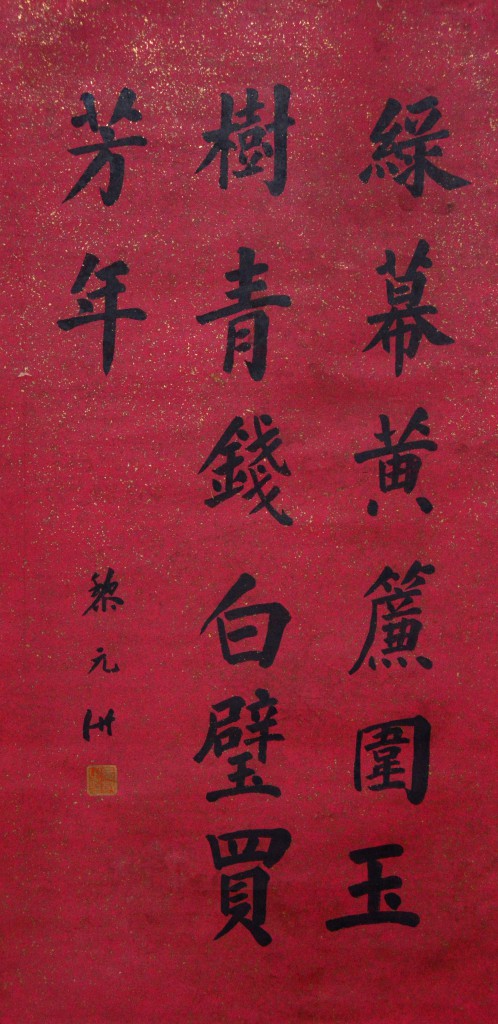 綠幕黃簾圍玉
樹青錢白璧買
芳年
黎元洪